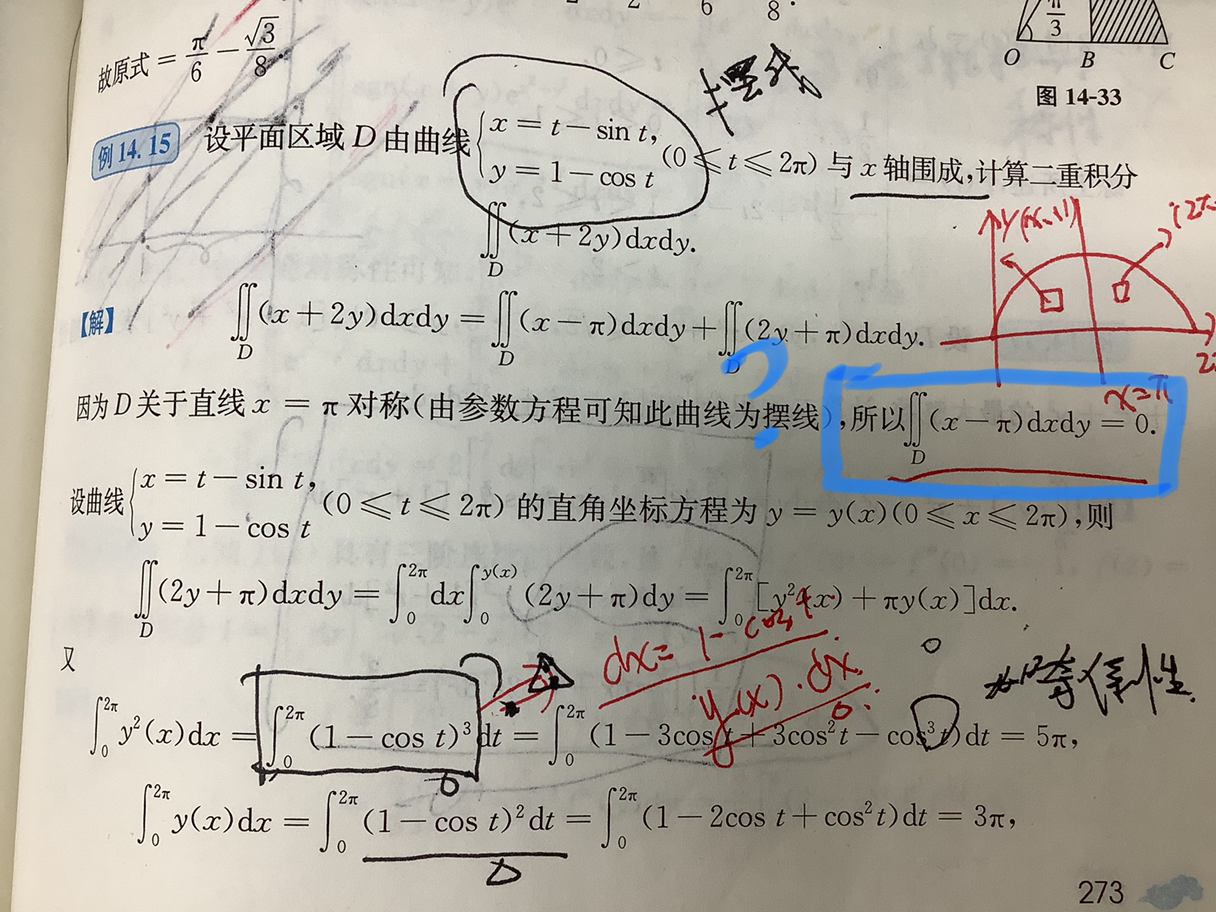 故原式 = π/6 − √3/8.
π/3
O B C
图 14-33
摆线
例 14.15 设平面区域 D 由曲线 { x = t − sin t, y = 1 − cos t (0 ⩽ t ⩽ 2π) 与 x 轴围成,计算二重积分
∬_D (x + 2y)dxdy.
y
【解】 ∬_D (x + 2y)dxdy = ∬_D (x − π)dxdy + ∬_D (2y + π)dxdy.
?
x=π
因为 D 关于直线 x = π 对称(由参数方程可知此曲线为摆线),所以 ∬_D (x − π)dxdy = 0.
设曲线 { x = t − sin t, y = 1 − cos t (0 ⩽ t ⩽ 2π) 的直角坐标方程为 y = y(x)(0 ⩽ x ⩽ 2π),则
∬_D (2y + π)dxdy = ∫_0^{2π} dx ∫_0^{y(x)} (2y + π)dy = ∫_0^{2π} [y²(x) + πy(x)]dx.
又
dx = 1 − cos t
y(x)·dx
∫_0^{2π} y²(x)dx = ∫_0^{2π} (1 − cos t)³ dt = ∫_0^{2π} (1 − 3cos t + 3cos² t − cos³ t)dt = 5π,
∫_0^{2π} y(x)dx = ∫_0^{2π} (1 − cos t)² dt = ∫_0^{2π} (1 − 2cos t + cos² t)dt = 3π,
273